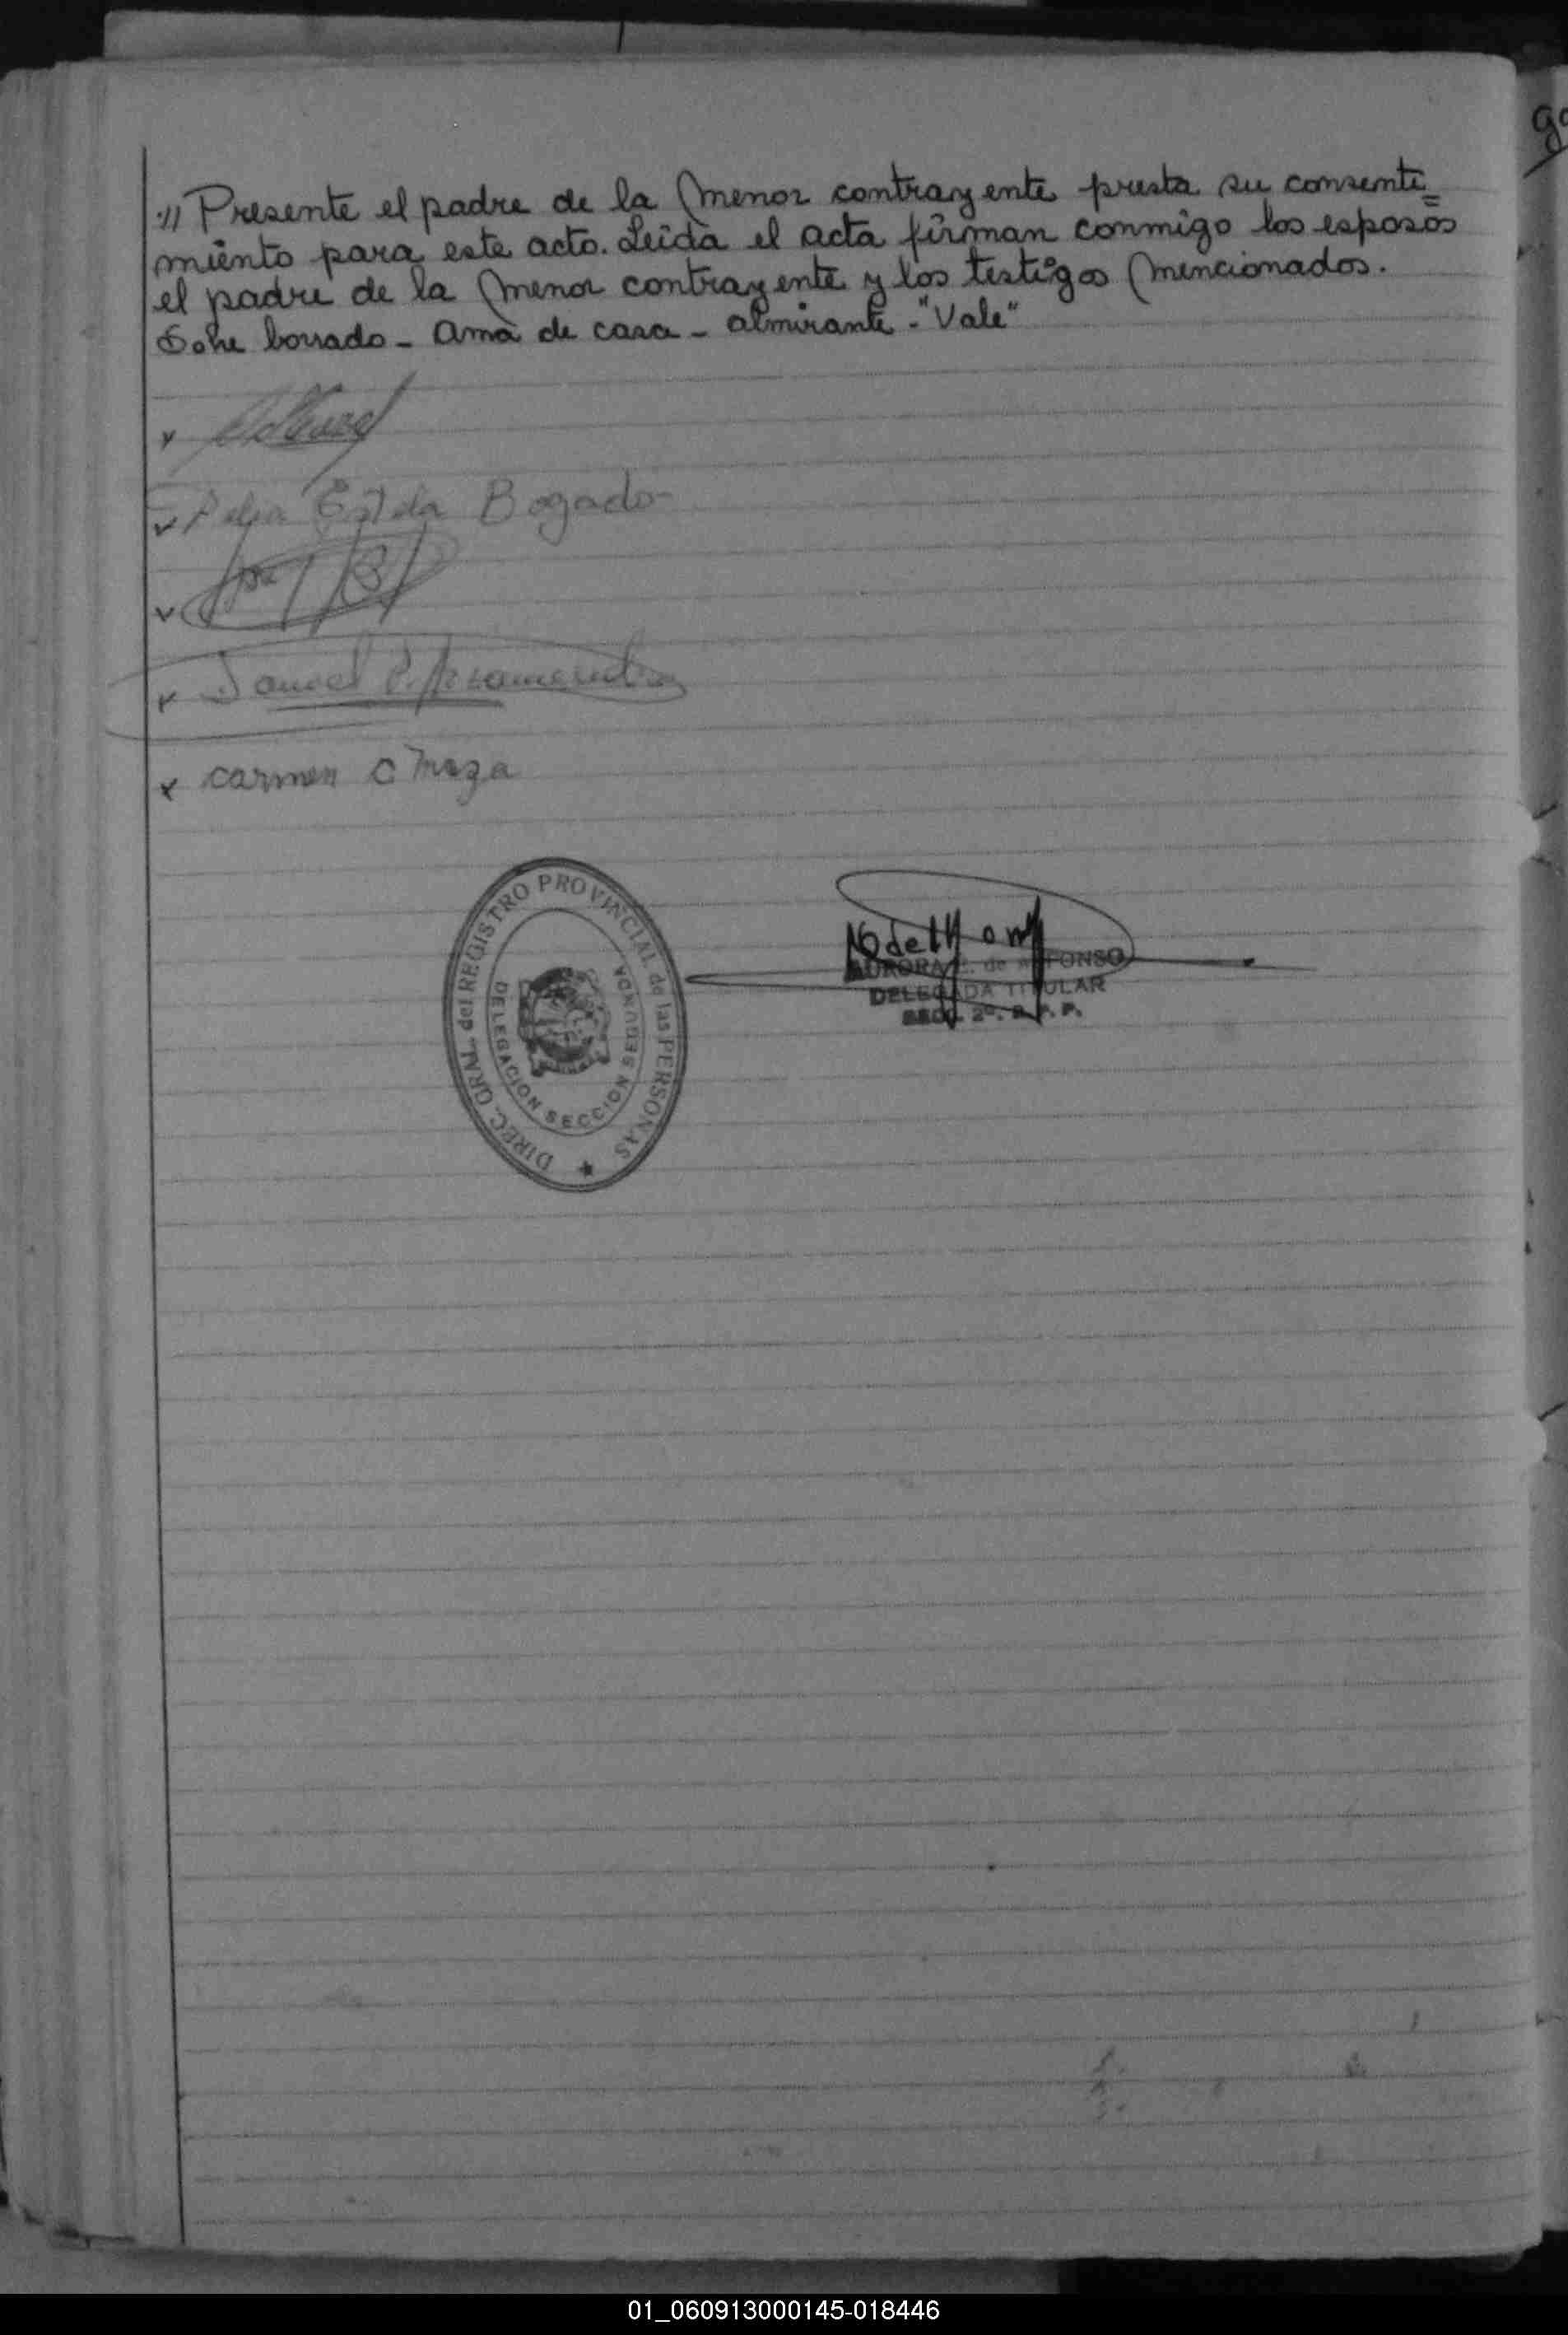 ·// Presente el padre de la menor contrayente presta su consenti=
miento para este acto. Leida el acta firman conmigo los esposos
el padre de la menor contrayente y los testigos mencionados.
Sobre borrado - Ama de casa - almirante - "Vale"
Bogado
carmen C Meza
DIREC. GRAL. del REGISTRO PROVINCIAL de las PERSONAS
DELEGACION SECCION SEGUNDA
AURORA de ALFONSO
DELEGADA TITULAR
SECC. 2º. R. P. P.
01_060913000145-018446